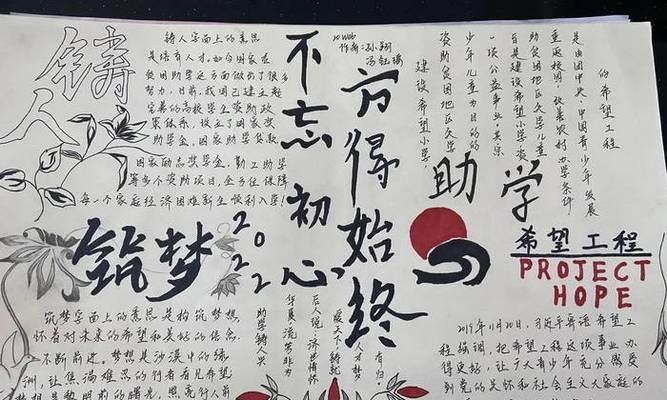 铸人
铸人字面上的意思
是培育人才。如今国家在
贫困助学这方面做出了很多
努力，目前，我国已建立起
完善的高校学生资助政
策体系，设立了国家奖
助学金、国家助学贷款、
国家励志奖学金、勤工助学
等多个资助项目，全方位保障
每一个家庭经济困难新生顺利入学！
不忘初心
方得始终
作者：孙翔
的希望工程
是由团中央、中国青少年发展
重返校园，改善农村办学条件
自县建设希望小学，资
一项公益事业，其宗
少年儿童为目的的
资助贫困地区失学
建设希望小学，
助学
希望工程
PROJECT
HOPE
筑梦
2022
筑梦字面上的意思是构筑梦想，
怀着对未来的希望和美好的信念，
不断前进。梦想是沙漠中的绿
洲，让焦渴难忍的行者看见希望
梦想是黎明前的曙光，照亮行人前
助学铸人兴
年医流芳非为
后人说，济世情怀
暖天下铸就
人才梦
有归。
2019年11月20日，习近平寄语希望工
程强调，把希望工程这项事业办
得更好，让广大青少年充分感受
到党的关怀和社会主义大家庭的